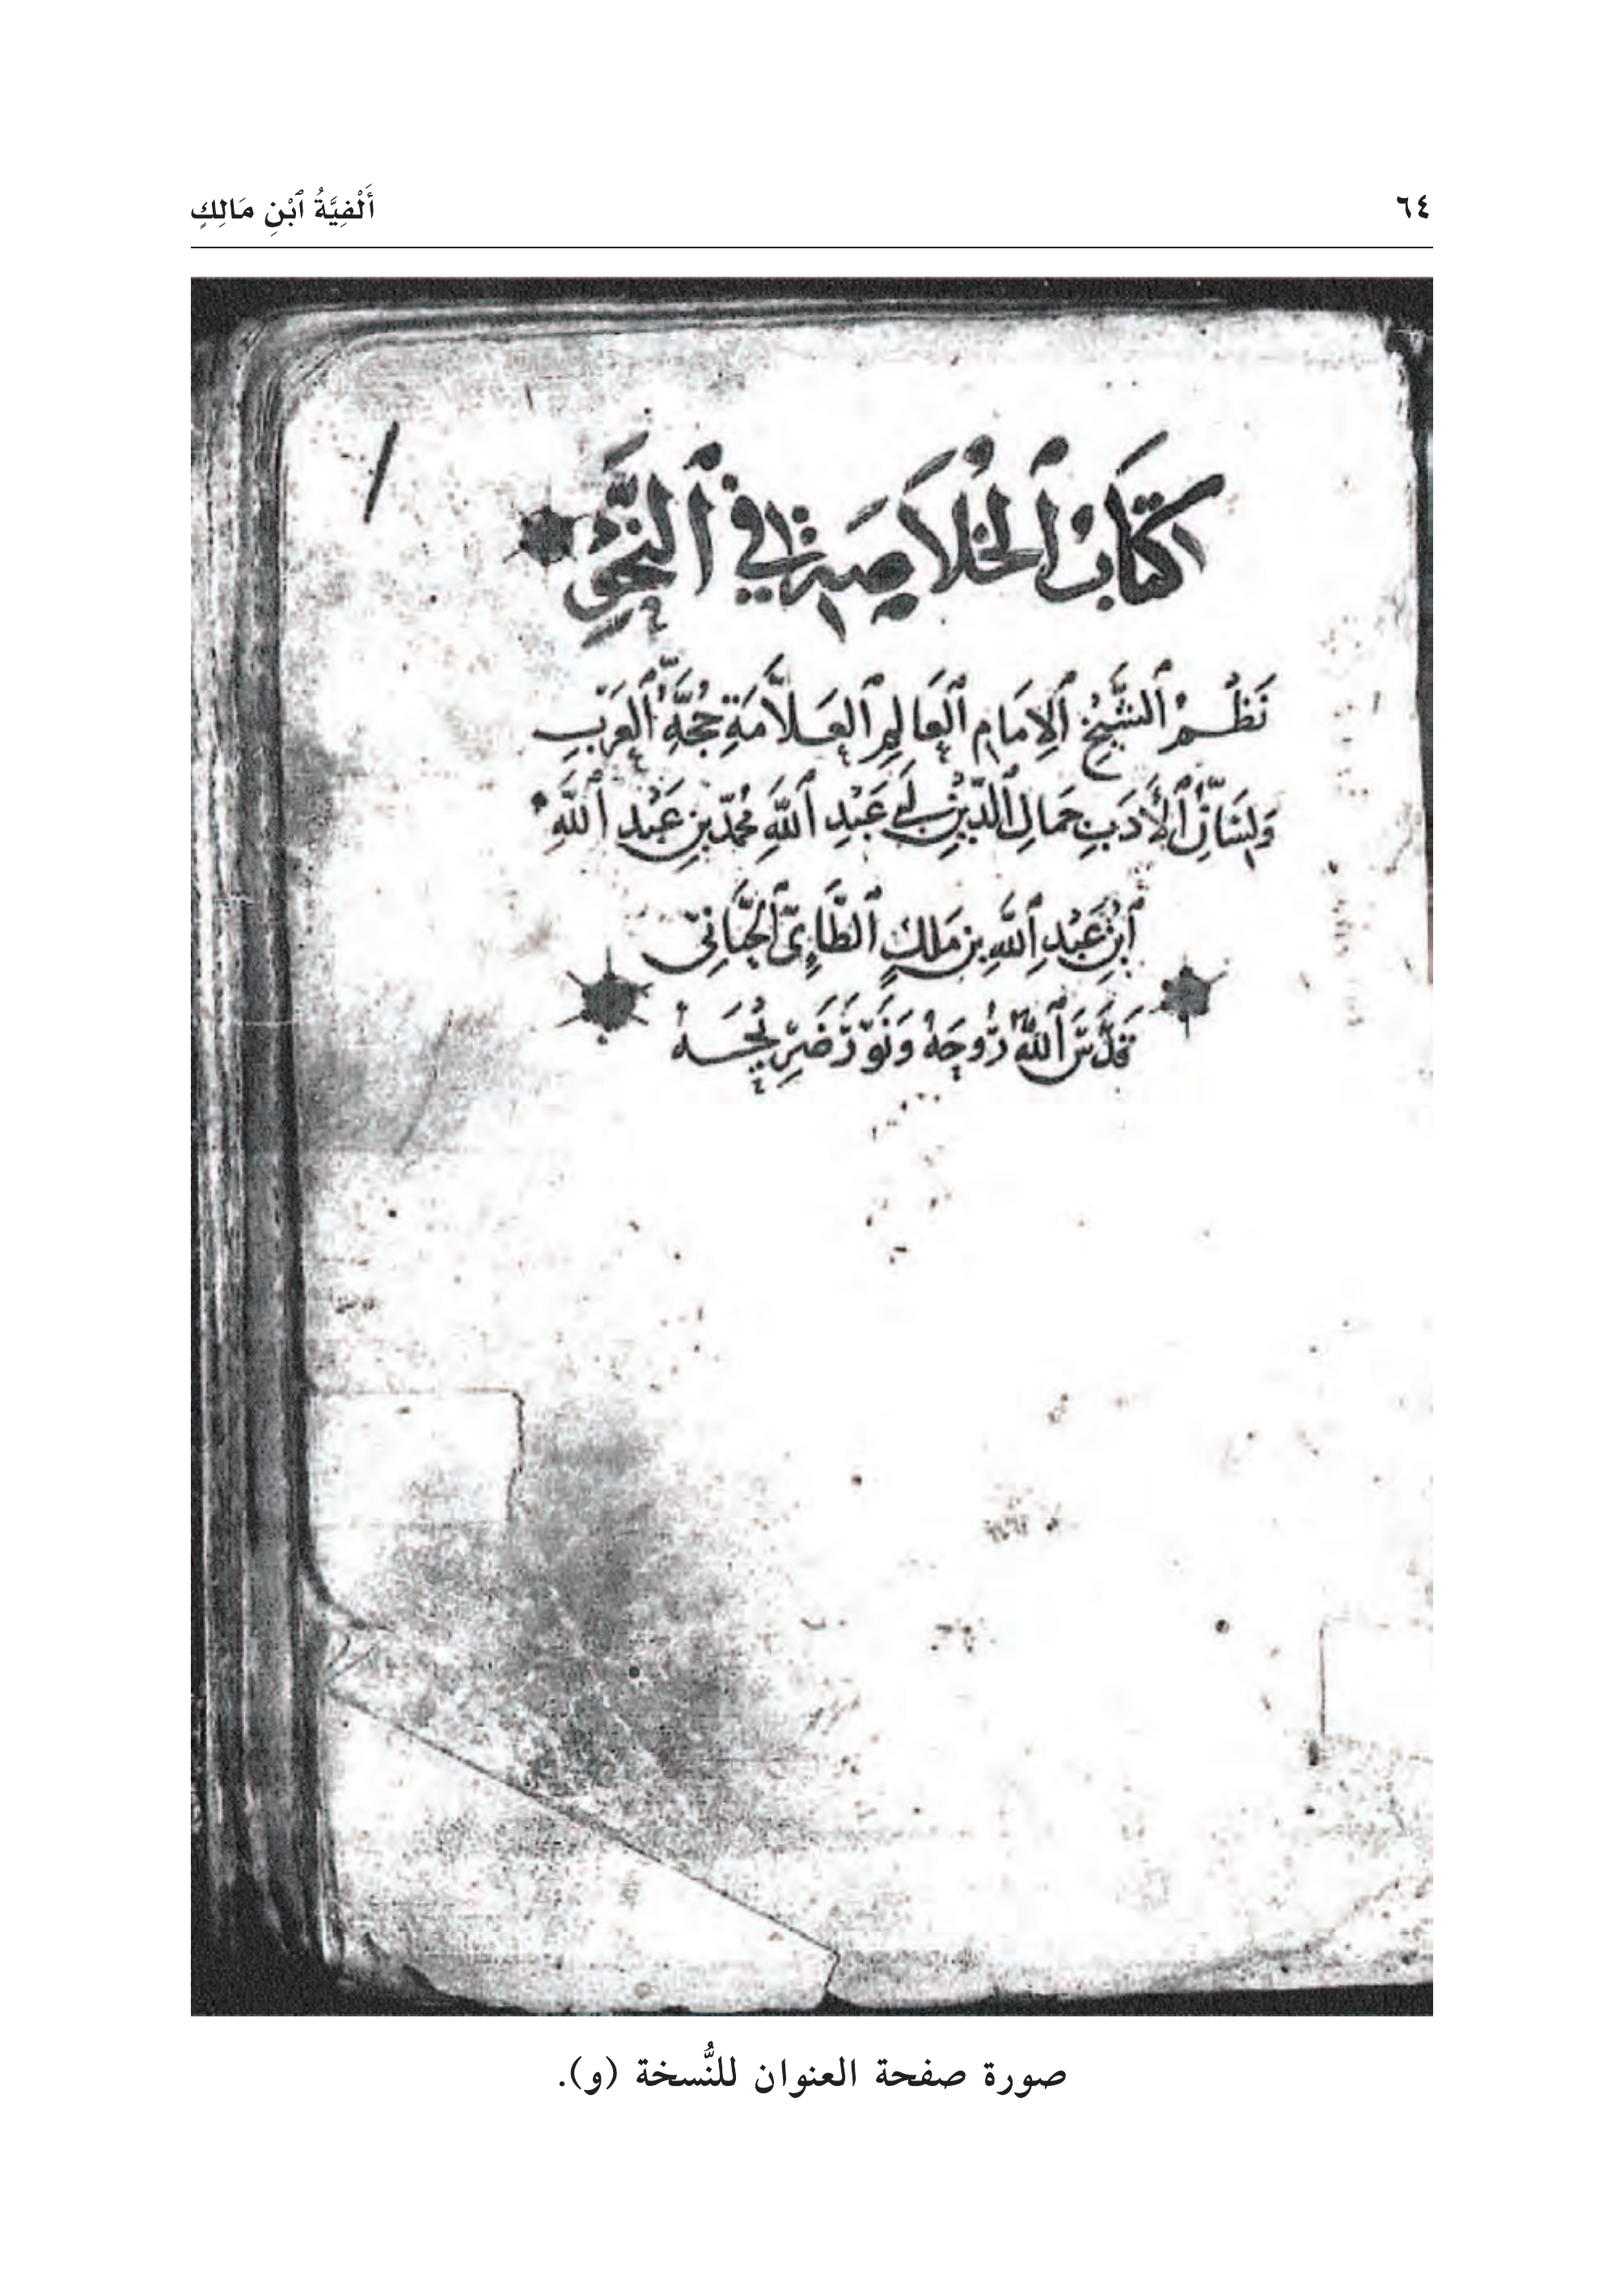 ٦٤ أَلْفِيَّةُ ٱبْنِ مَالِكٍ
كتَابُ ٱلخُلَاصَةِ فِي ٱلنَّحْوِ
نَظْمُ ٱلشَّيْخِ ٱلإِمَامِ ٱلعَالِمِ ٱلعَلَّامَةِ حُجَّةِ ٱلعَرَبِ
وَلِسَانِ ٱلأَدَبِ جَمَالِ ٱلدِّينِ أَبِي عَبْدِ ٱللَّهِ مُحَمَّدِ بنِ عَبْدِ ٱللَّهِ
ٱبْنِ عَبْدِ ٱللَّهِ بنِ مَلكٍ ٱلطَّائِيِّ ٱلجَيَّانِيِّ
قَدَّسَ ٱللَّهُ رُوحَهُ وَنَوَّرَ ضَرِيحَهُ
صورة صفحة العنوان للنُّسخة (و).